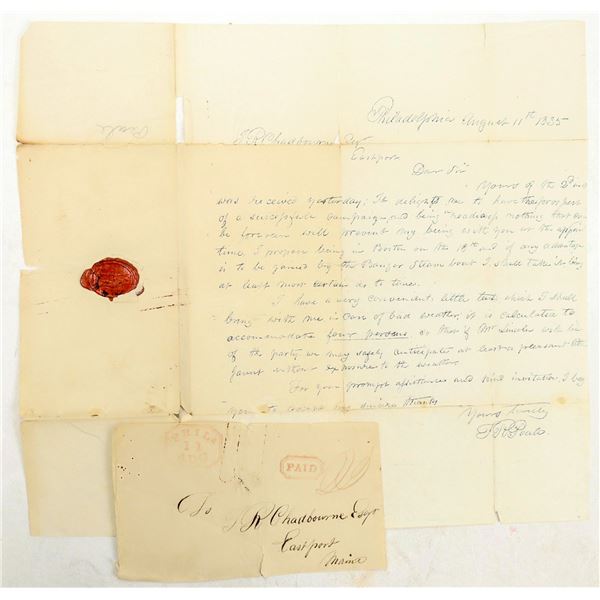 Philadelphia August 11th 1835
T.R. Chadbourne Esqr
Eastport
Dear Sir
Yours of the 2d inst
was received yesterday; It delights me to have the prospect
of a successful campaign, and being "headcap" nothing that can
be foreseen will prevent my being with you on the appoin
time. I propose being in Boston on the 19th and if any advantage
is to be gained by the Bangor Steam boat I shall take it, being
at least more certain as to time.
I have a very convenient little tent which I shall
bring with me in case of bad weather, it is calculated to
accommodate four persons, so that if Mr Lincoln
of the party, we may safely anticipate at least a pleasant little
jaunt without exposure to the weather.
For your prompt and kind invitation I beg
you to accept my sincere thanks
Yours truly
T.R. Peale
Peale
PHILA
11
AUG
PAID
To T.R. Chadbourne Esqr
Eastport
Maine